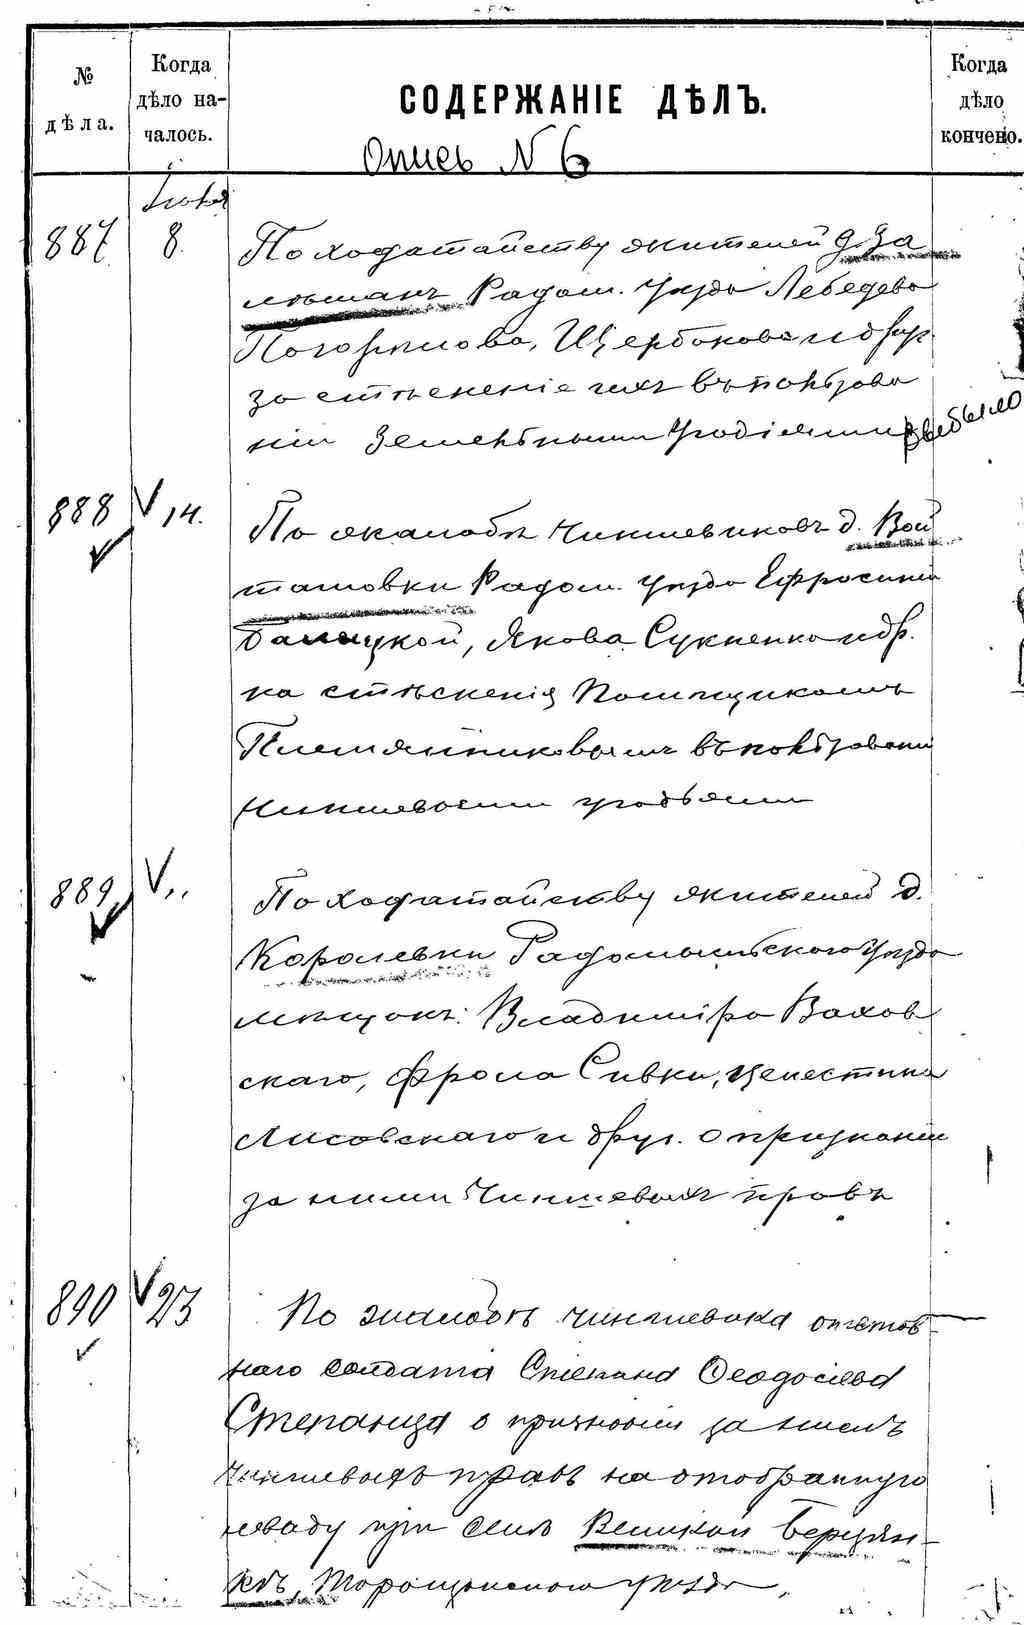 № дѣла.
Когда дѣло началось.
СОДЕРЖАНІЕ ДѢЛЪ.
Когда дѣло кончено.
Опись N 6
887
8.
По ходатайству жителей д. За
мошанъ Радом. уѣзда Лебедева
Погорѣлова, Щербакова и друг.
за стѣсненіе ихъ въ пользова
ніи земельными угодіями
выбыло
888
V 14.
По жалобѣ чиншевиковъ д. Вой
ташовки Радом. уѣзда Ефросиніи
цкой, Якова Сукненко и др.
на стѣсненія помѣщикомъ
Племянниковымъ въ пользованіи
чиншевыми угодьями
889
V „
По ходатайству жителей д.
Королевки Радомысльскаго уѣзда
мѣщанъ: Владиміра Вахов
скаго, Фрола Сивки, Целестина
Лисовскаго и друг. о признаніи
за ними чиншевыхъ правъ
890
V 23
По жалобѣ чиншевика отстав-
наго солдата Степана Феодосіева
Степанца о признаніи за нимъ
чиншевыхъ правъ на отобранную
леваду при селѣ Великой Березян-
кѣ, Таращанскаго уѣзда,